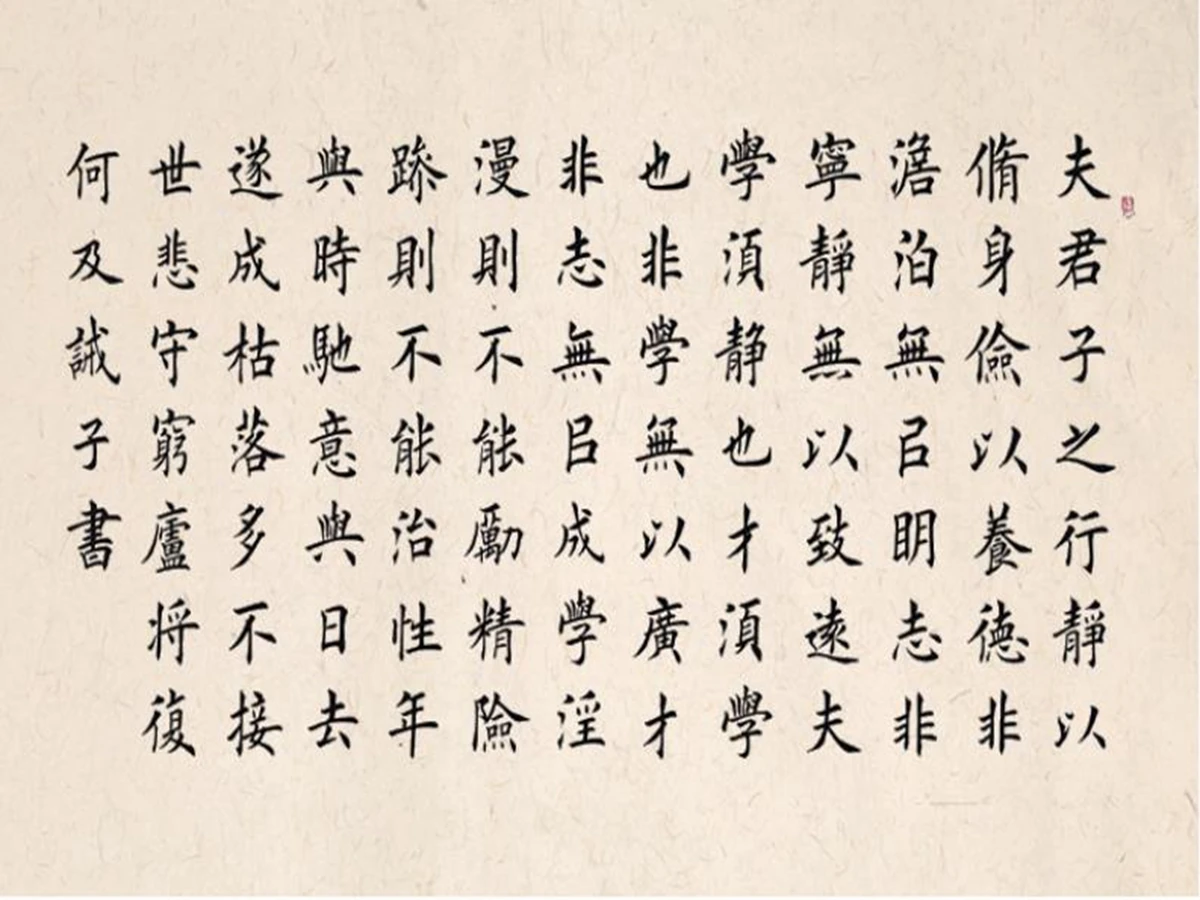 夫君子之行靜以
脩身儉以養德非
澹泊無㠯明志非
寧靜無以致遠夫
學湏静也才湏學
也非學無以廣才
非志無㠯成學淫
漫則不能勵精險
躁則不能治性年
與時馳意與日去
遂成枯落多不接
世悲守窮廬将復
何及誡子書